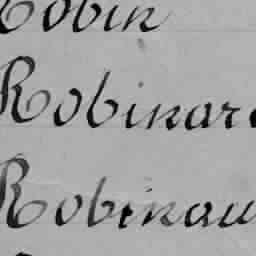 Robin
Robinar
Robinau